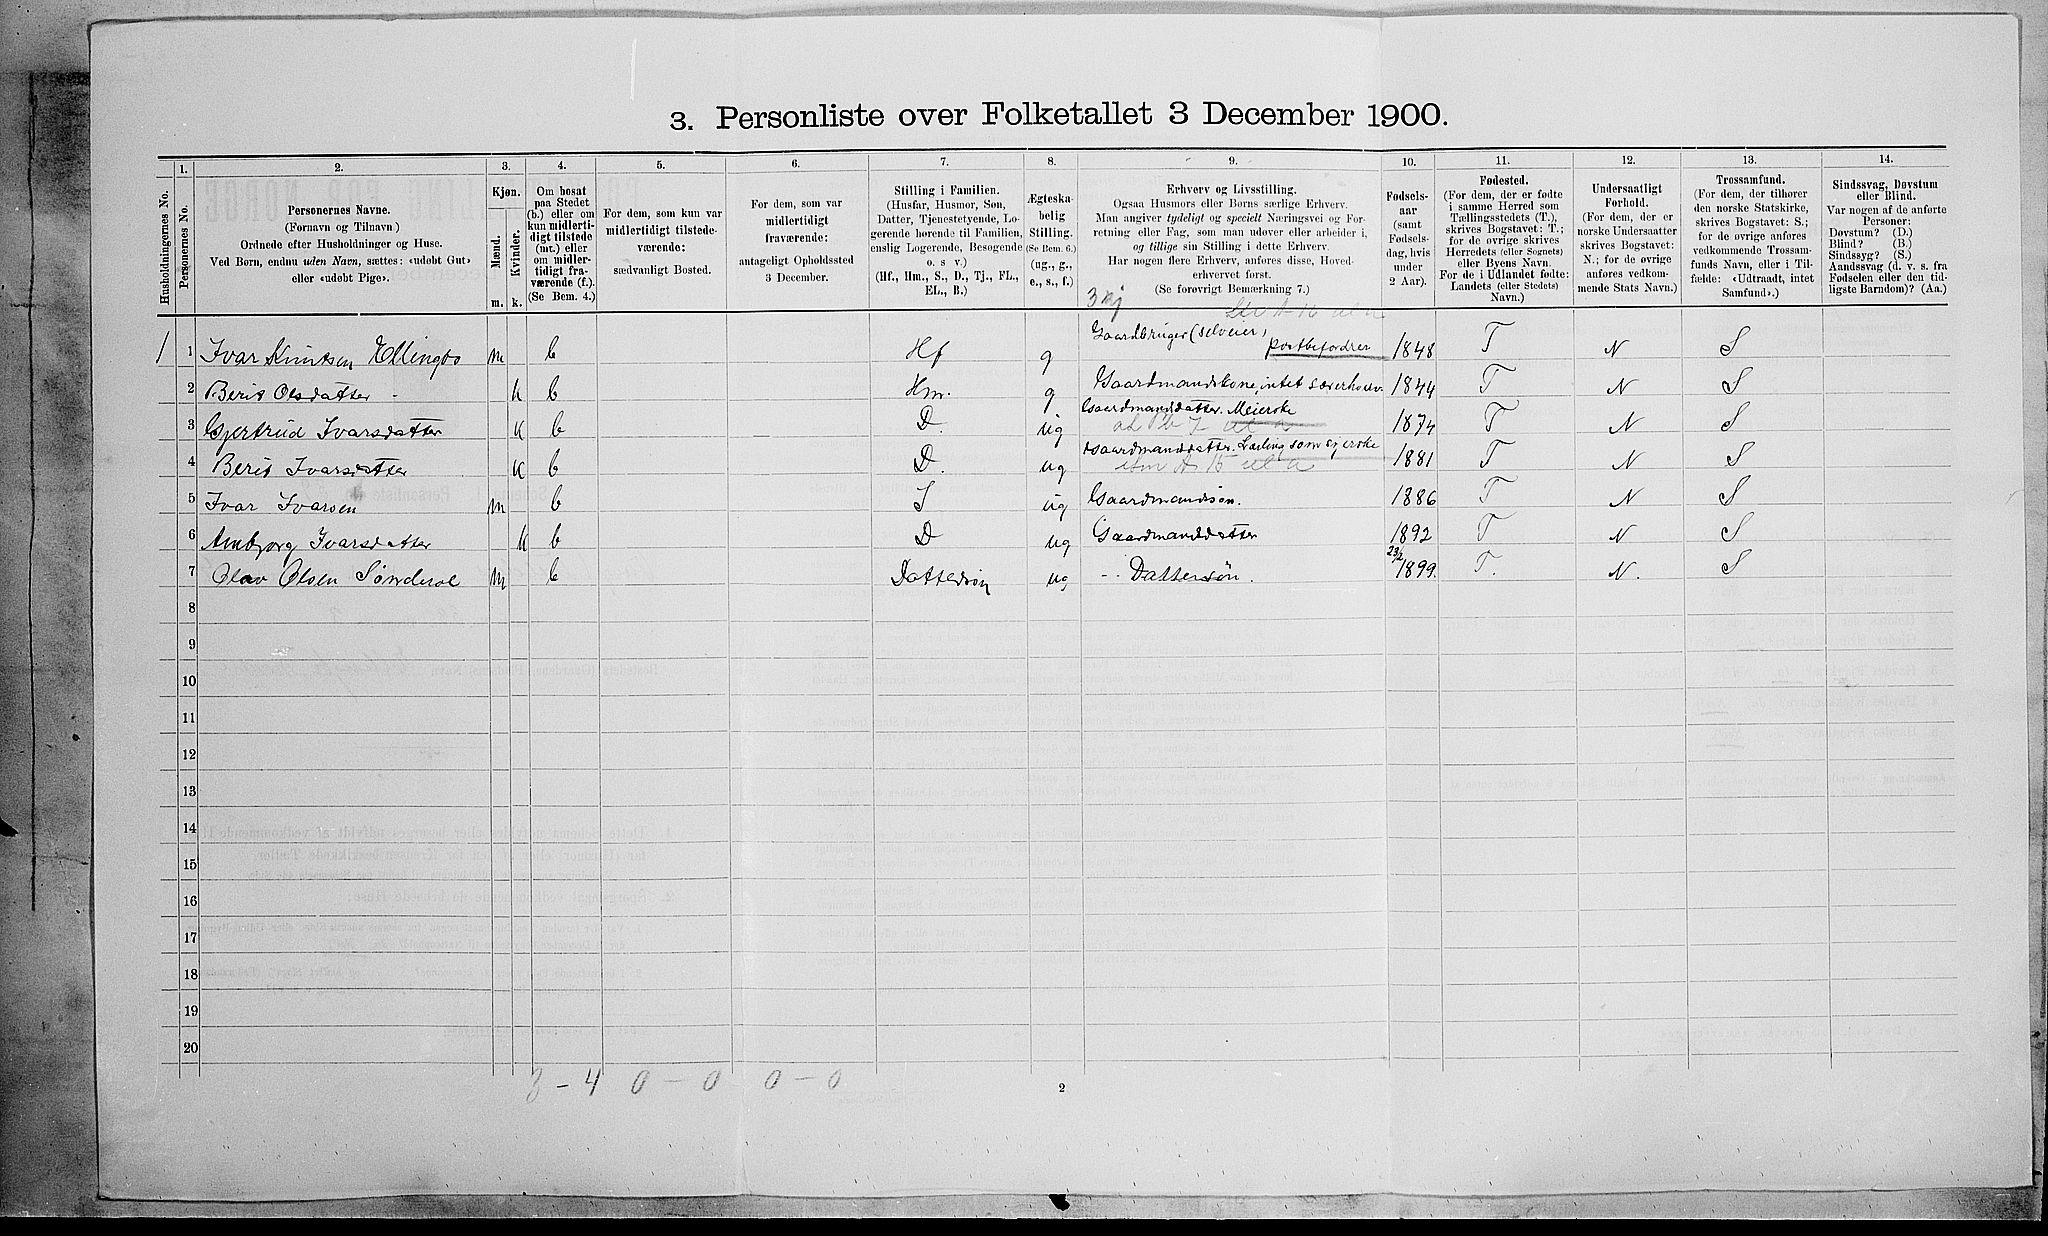 3. Personliste over Folketallet 3 December 1900.
1. 2. 3. 4. 5. 6. 7. 8. 9. 10. 11. 12. 13. 14.
Husholdningernes No.
Personernes No.
Personernes Navne.
(Fornavn og Tilnavn.)
Ordnede efter Husholdninger og Huse.
Ved Børn, endnu uden Navn, sættes: «udøbt Gut»
eller «udøbt Pige».
Kjøn.
Mænd.
Kvinder.
m. k.
Om bosat
paa Stedet
(b.) eller om
kun midlerti-
digt tilstede
(mt.) eller
om midler-
tidigt fra-
værende (f.).
(Se Bem. 4.)
For dem, som kun var
midlertidigt tilstede-
værende:
sædvanligt Bosted.
For dem, som var
midlertidigt
fraværende:
antageligt Opholdssted
3 December.
Stilling i Familien.
(Husfar, Husmor, Søn,
Datter, Tjenestetyende, Lo-
gerende hørende til Familien,
enslig Logerende, Besøgende
o. s v.)
(Hf., Hm., S., D., Tj., FL.,
EL., B.)
Ægteska-
belig
Stilling.
(Se Bem. 6.)
(ug., g.,
e., s., f.)
Erhverv og Livsstilling.
Ogsaa Husmors eller Børns særlige Erhverv.
Man angiver tydeligt og specielt Næringsvei og For-
retning eller Fag, som man udover eller arbeider i,
og tillige sin Stilling i dette Erhverv.
Har nogen flere Erhverv, anføres disse, Hoved-
erhvervet først.
(Se forøvrigt Bemærkning 7.)
Fødsels-
aar
(samt
Fødsels-
dag, hvis
under
2 Aar).
Fødested.
(For dem, der er fødte
i samme Herred som
Tællingsstedets (T.),
skrives Bogstavet: T.;
for de øvrige skrives
Herredets (eller Sognets)
eller Byens Navn.
For de i Udlandet fødte:
Landets (eller Stedets)
Navn.)
Undersaatligt
Forhold.
(For dem, der er
norske Undersaatter
skrives Bogstavet:
N.; for de øvrige
anføres vedkom-
mende Stats Navn.)
Trossamfund.
(For dem, der tilhører
den norske Statskirke,
skrives Bogstavet: S.;
for de øvrige anføres
vedkommende Trossam-
funds Navn, eller i Til-
fælde: «Udtraadt, intet
Samfund».)
Sindssvag, Døvstum
eller Blind.
Var nogen af de anførte
Personer:
Døvstum? (D.)
Blind? (B.)
Sindssyg? (S.)
Aandssvag (d. v. s. fra
Fødselen eller den tid-
ligste Barndom)? (Aa.)
1 1 Ivar Knutsen Ellingbo m b Hf g Gaardbruger (selveier, postbefordrer 1848 T N S
2 Berit Olsdatter - K b Hm. g Gaardmandskone, intet særerhverv. 1844 T N S
3 Gjertrud Ivarsdatter K b D. ug Gaardmanddatter. Meierske 1874 T N S
4 Berit Ivarsdatter K b D. ug Gaardmanddatter. Lærling som syerske 1881 T N S
5 Ivar Ivarsen m b S ug Gaardmandssøn. 1886 T N S
6 Ambjørg Ivarsdatter K b D ug Gaardmanddatter 1892 T N S
7 Olav Olsen Sønderol m b Datterson ug -- Dattersøn. 23/2 1899. T. N. S
8
9
10
11
12
13
14
15
16
17
18
19
20
3 – 4 0 – 0 0 – 0
2